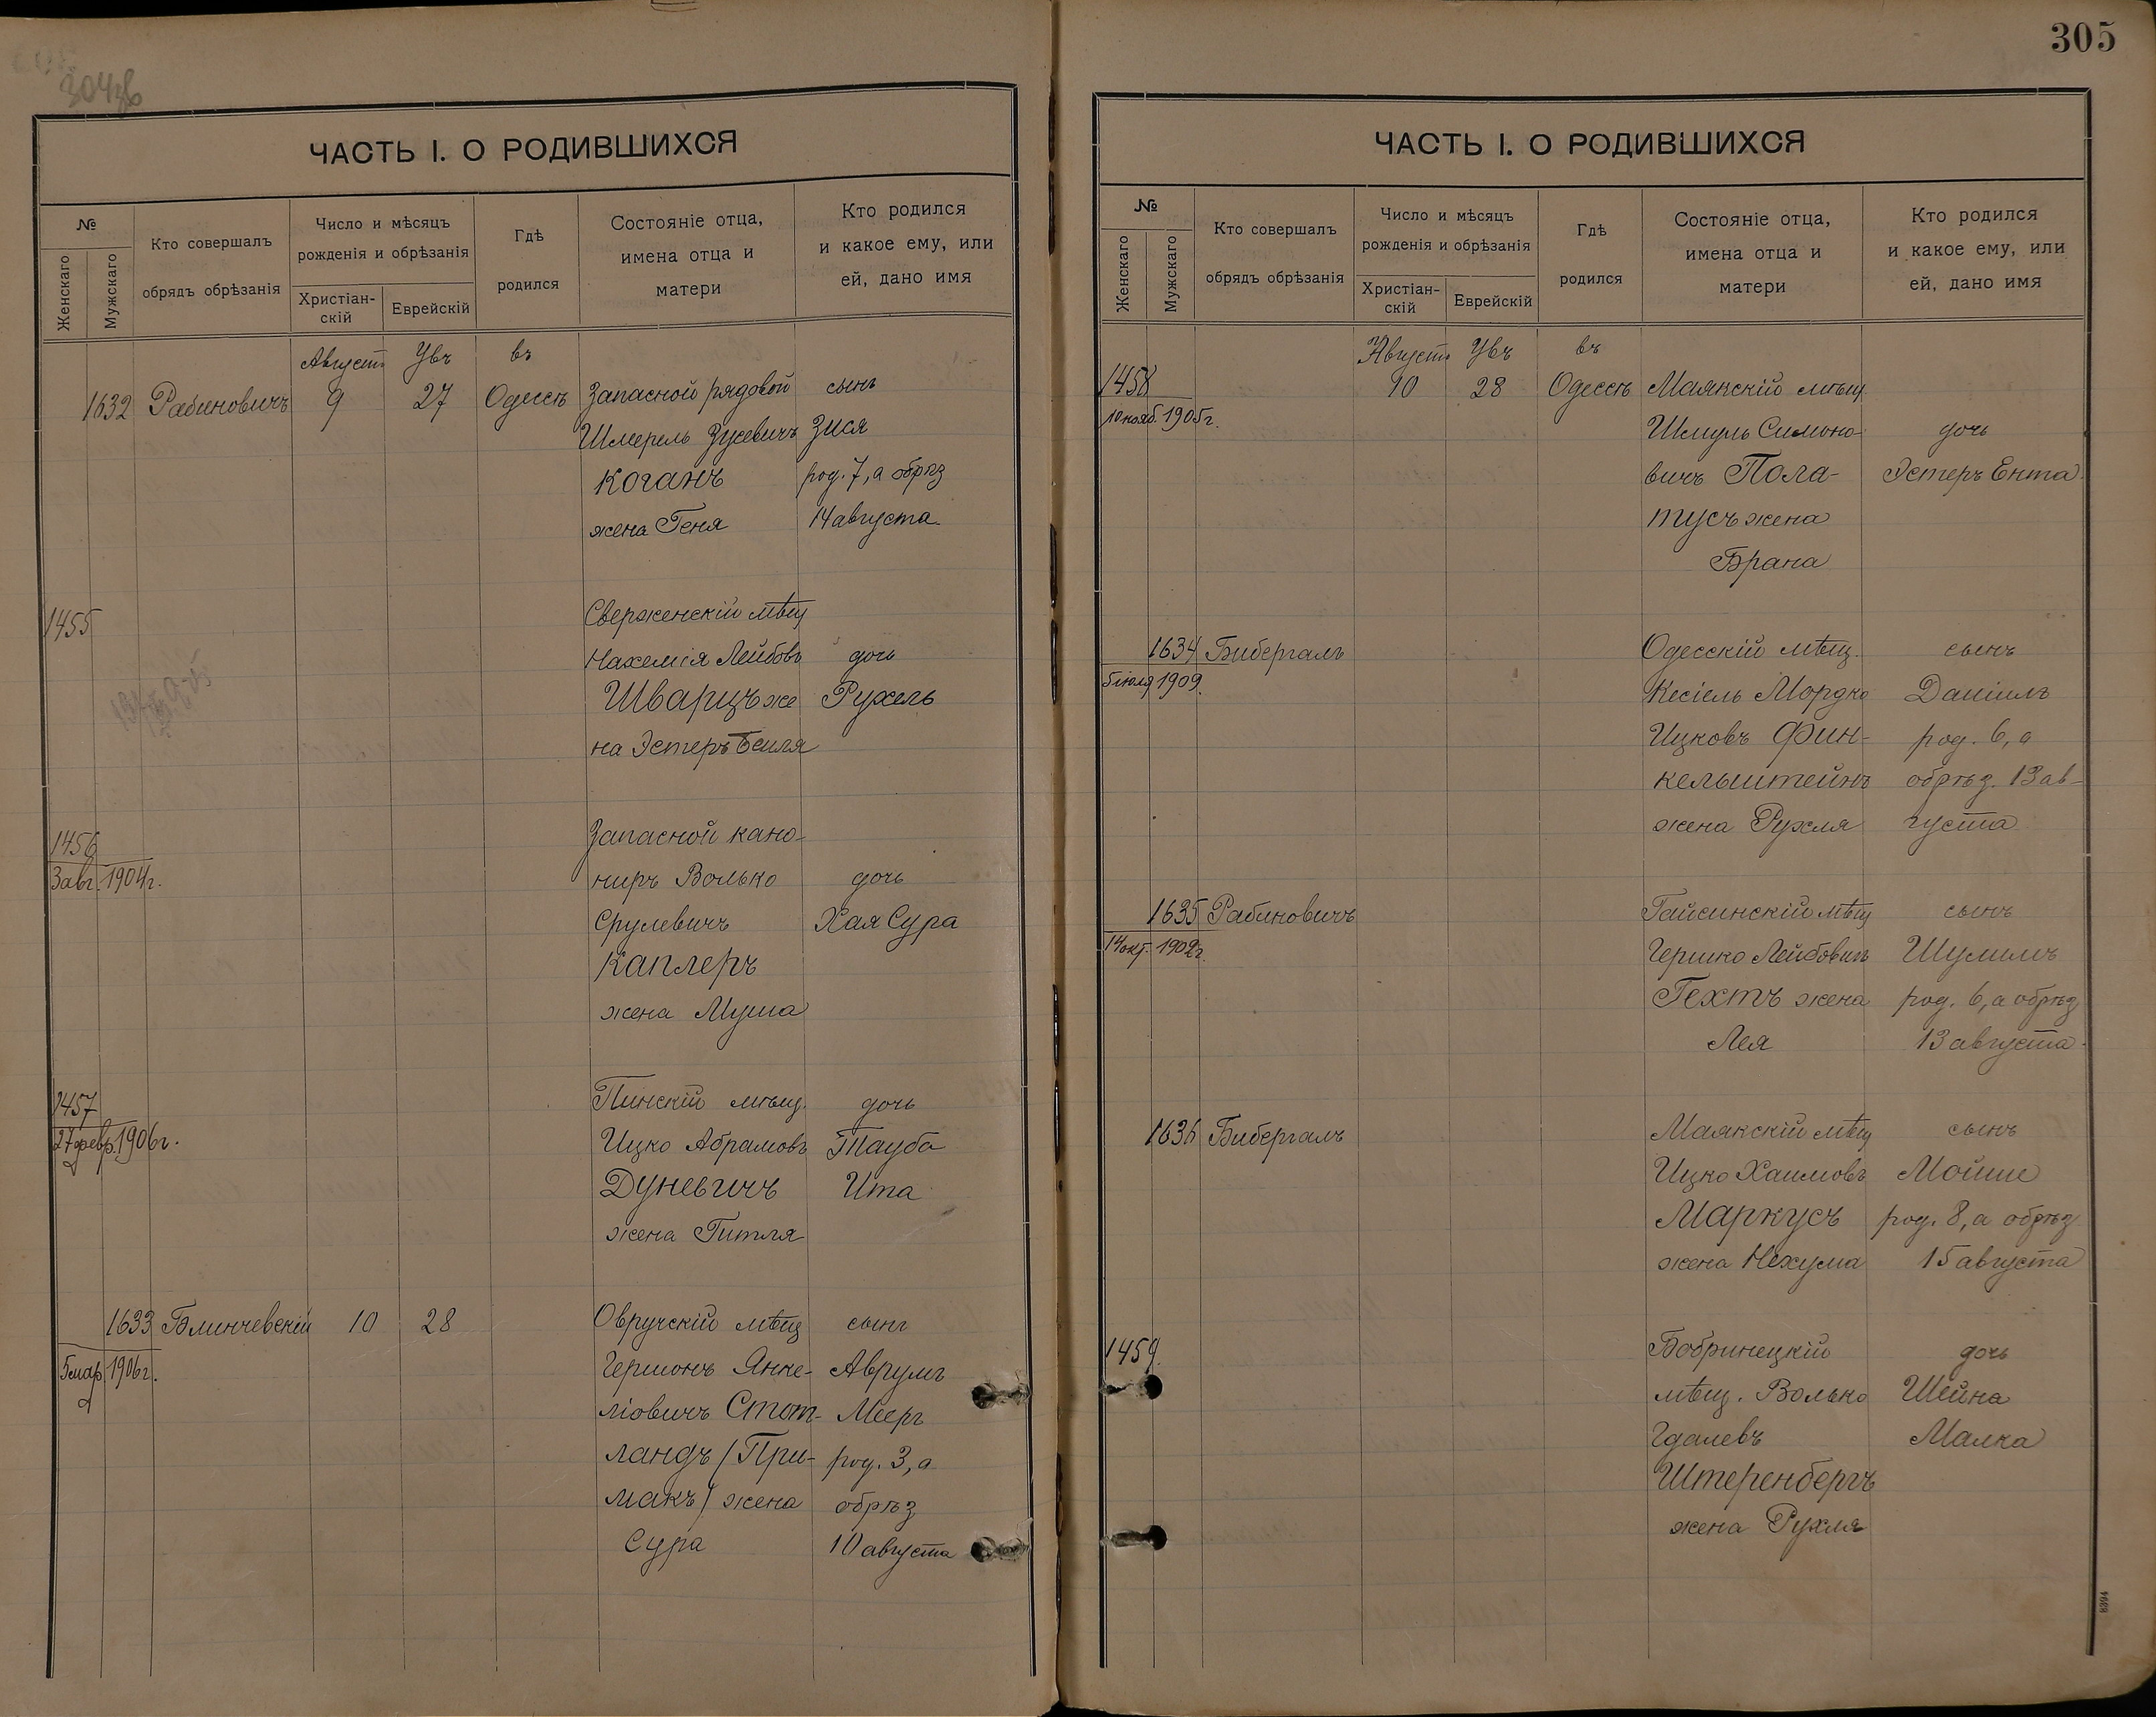 304 об
ЧАСТЬ I. О РОДИВШИХСЯ
№
Женскаго
Мужскаго
Кто совершалъ
обрядъ обрѣзанія
Число и мѣсяцъ
рожденія и обрѣзанія
Христіан-
скій
Еврейскій
Гдѣ
родился
Состояніе отца,
имена отца и
матери
Кто родился
и какое ему, или
ей, дано имя
Августъ Увъ въ
1632 Рабиновичъ 9 27 Одессѣ Запасной рядовой сынъ
Шмерель Зусевичъ Зися
Коганъ род. 7, а обрѣз
жена Геня 14 августа
1455 Сверженскій мѣщ
Нахемія Лейбовъ дочь
Шварцъ же Рухель
на Эстеръ Бейля
1456 Запасной кано-
3 авг. 1904 г. ниръ Волько дочь
Срулевичъ Хая Сура
Каплеръ
жена Муша
1457 Пинскій мѣщ. дочь
27 февр. 1906 г. Ицко Абрамовъ Тауба
Дуневичъ Ита
жена Гитля
1633 Блинчевскій 10 28 Овручскій мѣщ сынъ
5 мар 1906 г. Гершонъ Янке- Аврумъ
ліовичъ Стот- Мееръ
ландъ (При- род. 3, а
макъ) жена обрѣз
Сура 10 августа
305
ЧАСТЬ I. О РОДИВШИХСЯ
№
Женскаго
Мужскаго
Кто совершалъ
обрядъ обрѣзанія
Число и мѣсяцъ
рожденія и обрѣзанія
Христіан-
скій
Еврейскій
Гдѣ
родился
Состояніе отца,
имена отца и
матери
Кто родился
и какое ему, или
ей, дано имя
Августъ Увъ въ
1458 10 28 Одессѣ Маякскій мѣщ
10 нояб. 1905 г. Шмуль Симоно- дочь
вичъ Пола- Эстеръ Ента
тусъ жена
Брана
1634 Бибергалъ Одесскій мѣщ. сынъ
6 іюля 1909. Кесіель Мордко Даніилъ
Ицковъ Фин- род. 6, а
кельштейнъ обрѣз. 13 ав-
жена Рухля густа
1635 Рабиновичъ Гайсинскій мѣщ сынъ
14 окт. 1902 г. Гершко Лейбовичъ Шулимъ
Гехтъ жена род. 6, а обрѣз
Лея 13 августа
1636 Бибергалъ Маякскій мѣщ сынъ
Ицко Хаимовъ Мойше
Маркусъ род. 8, а обрѣз
жена Нехума 15 августа
1459. Бобринецкій дочь
мѣщ. Волько Шейна
Гдалевъ Малка
Штеренбергъ
жена Рухля
8394